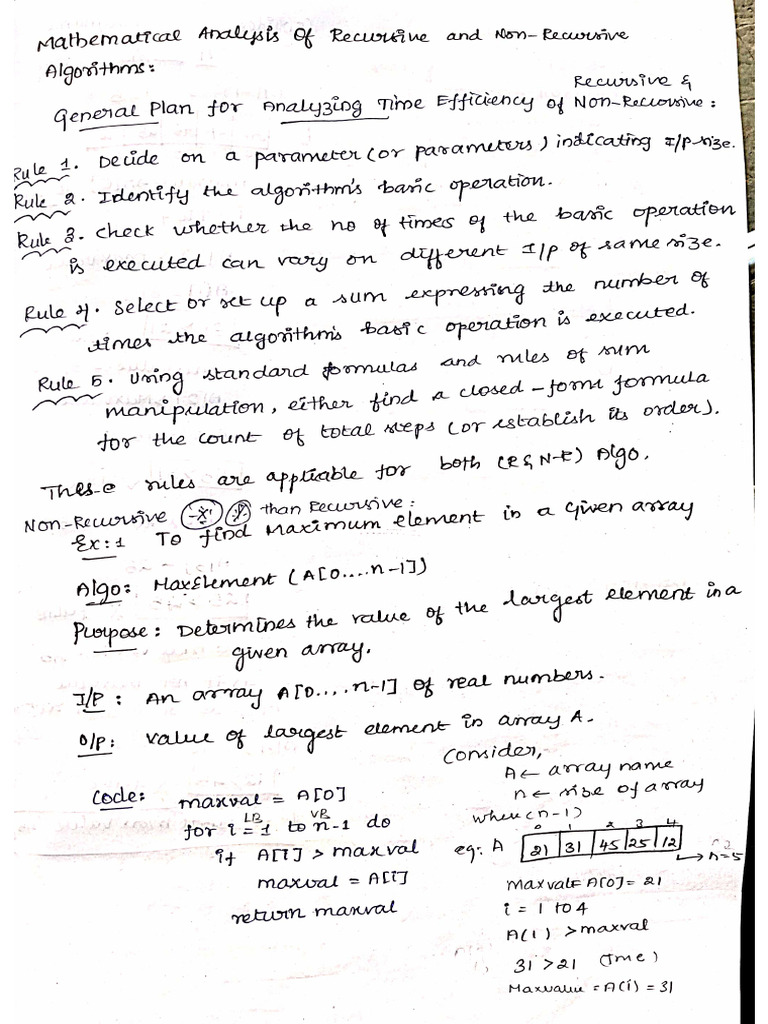 Mathematical Analysis Of Recursive and Non-Recursive
Algorithms:
Recursive &
General Plan for Analyzing Time Efficiency of Non-Recursive:
Rule 1. Decide on a parameter (or parameters) indicating I/p size.
Rule 2. Identify the algorithm's basic operation.
Rule 3. check whether the no of times of the basic operation
is executed can vary on different I/p of same size.
Rule 4. Select or set up a sum expressing the number of
times the algorithm's basic operation is executed.
Rule 5. Using standard formulas and rules of sum
manipulation, either find a closed-form formula
for the count of total steps (or establish its order).
These rules are applicable for both (R & N-R) Algo.
Non-Recursive than Recursive:
Ex:1 To find Maximum element in a given array
Algo: MaxElement (A[0....n-1])
Purpose: Determines the value of the largest element in a
given array.
I/P: An array A[0....n-1] of real numbers.
O/P: value of largest element in array A.
Consider,
A ← array name
n ← size of array
when(n-1)
Code: maxval = A[0]
LB
for i = 1 to n-1 do
if A[i] > maxval
maxval = A[i]
return maxval
0 1 3 4
eg: A 21 31 45 25 12
→ n=5
maxval= A[0]= 21
i = 1 to 4
A(1) >maxval
31 >21 (True)
Maxvalue = A(i) = 31